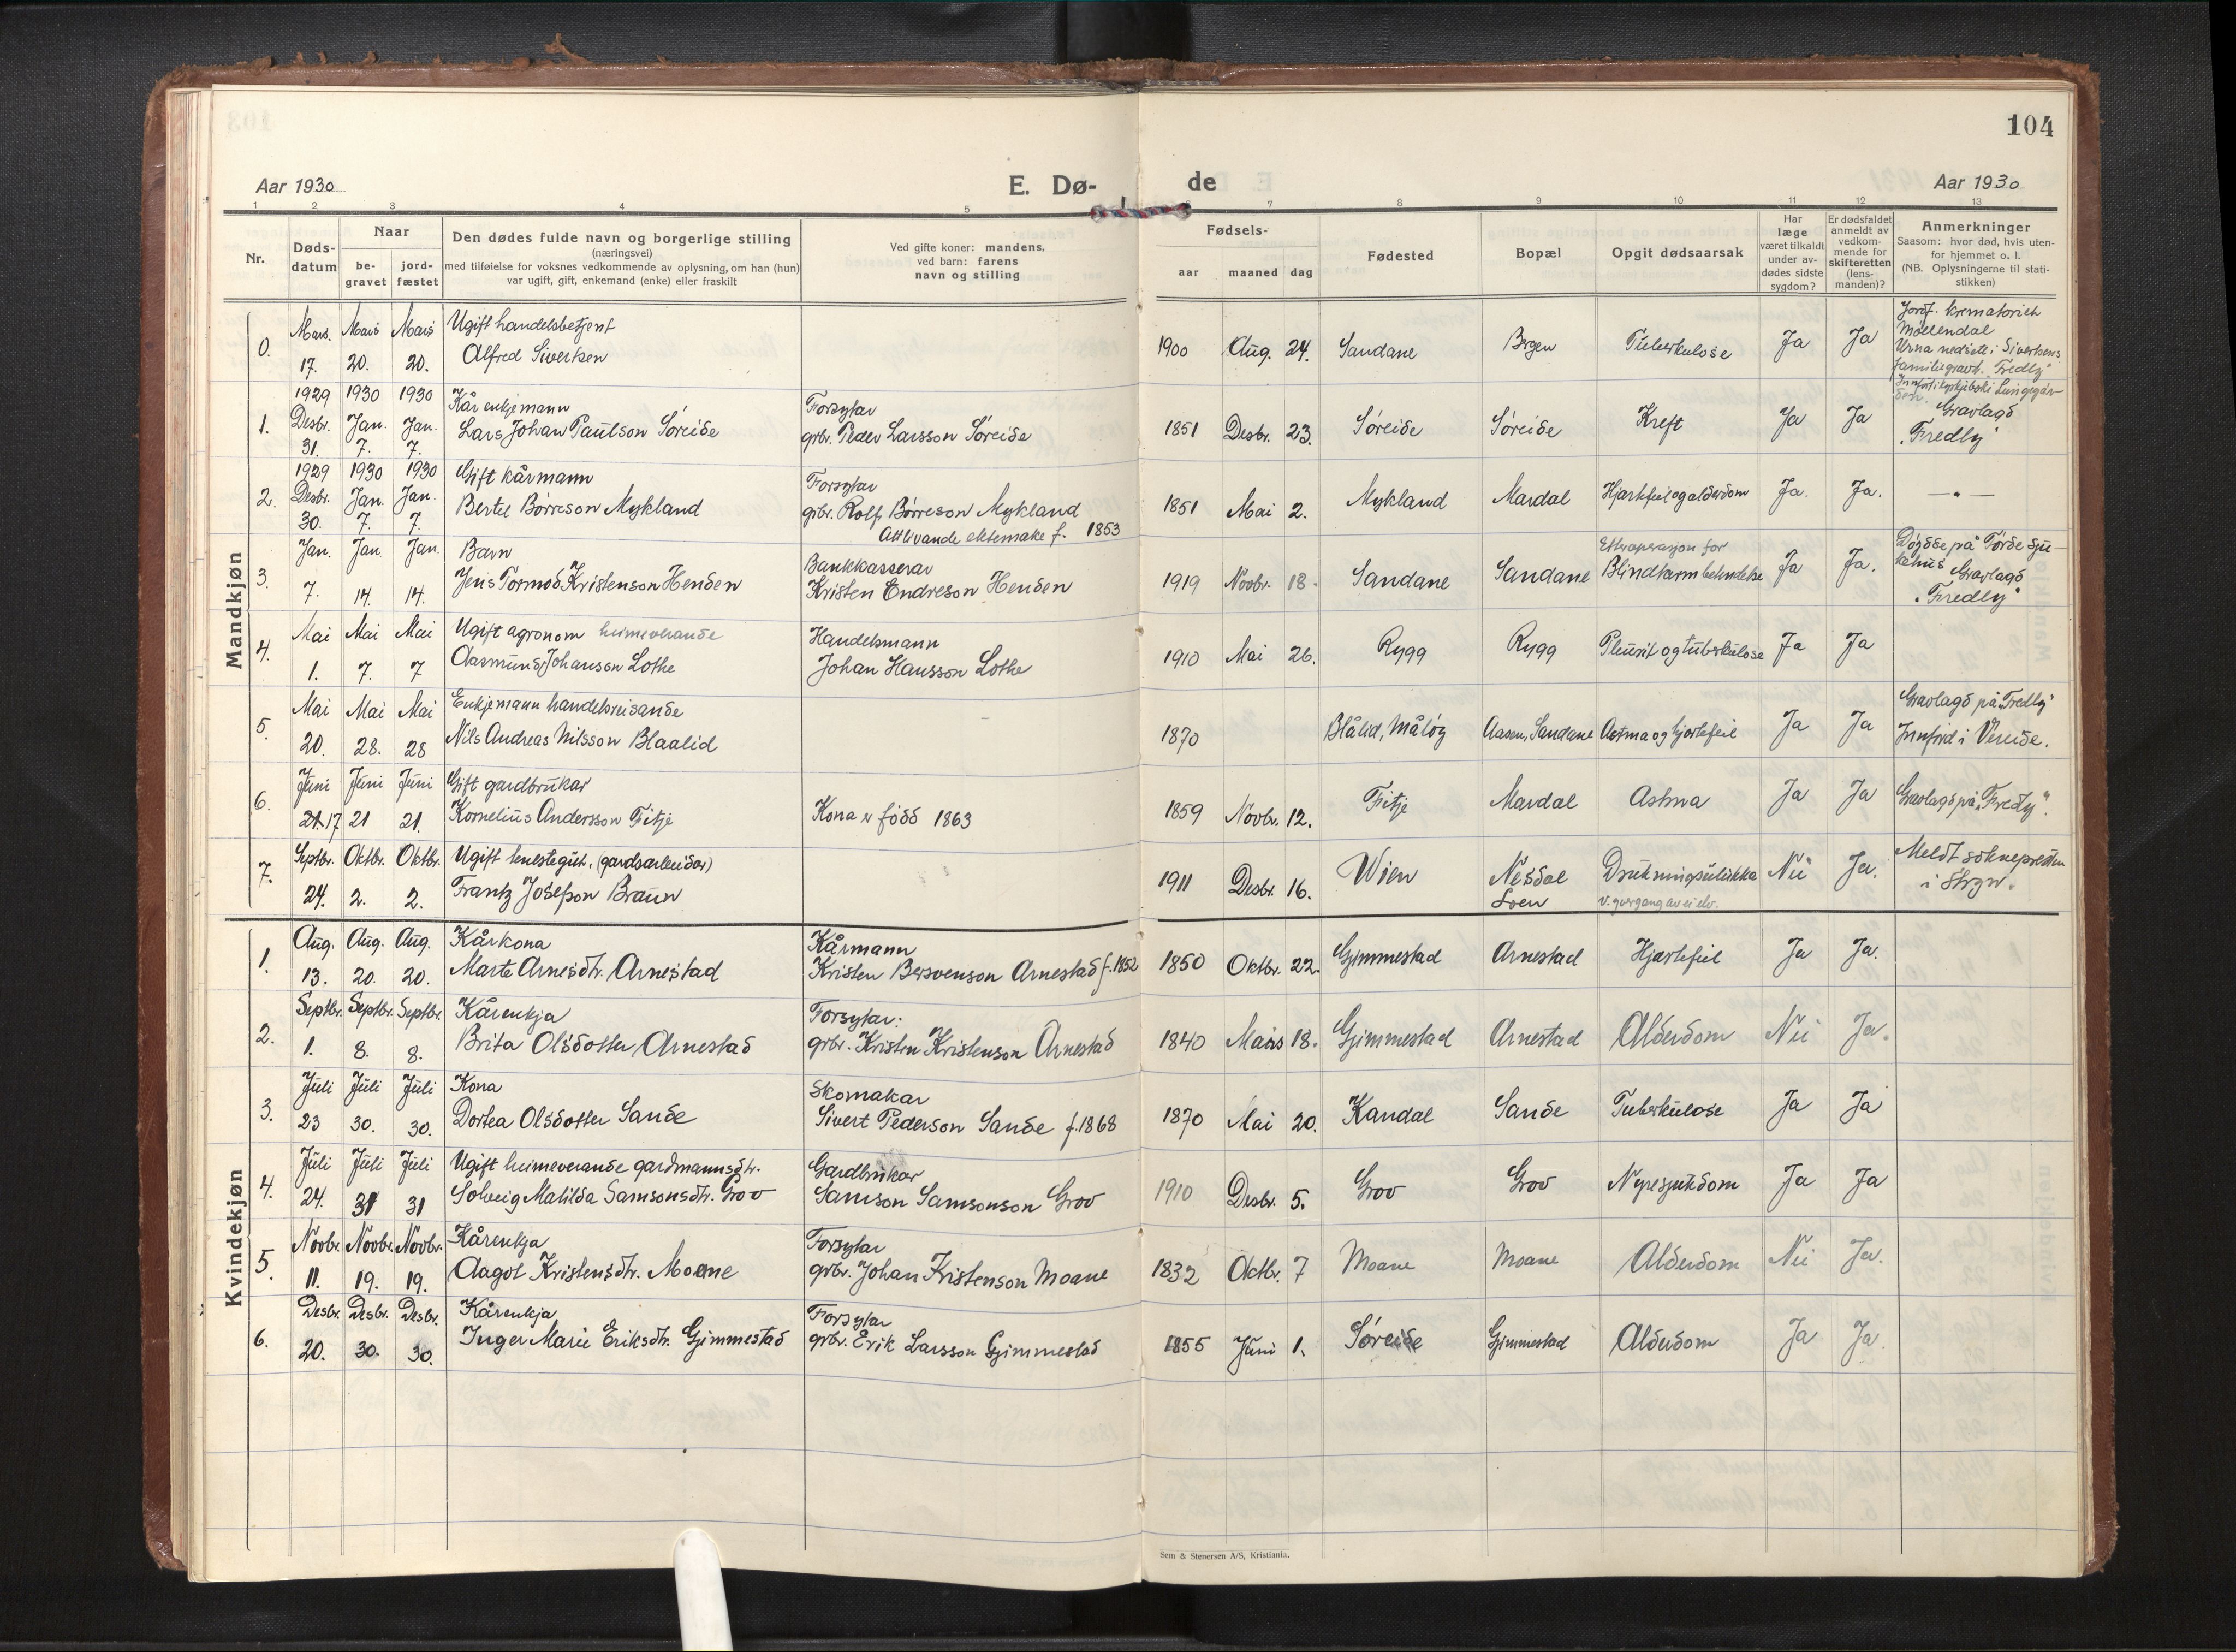 104
Aar 1930
E. Dø-
de
Aar 1930
1 2 3 4 5 6 7 8 9 10 11 12 13
Nr.
Døds-
datum
Naar
be-
gravet
jord-
fæstet
Den dødes fulde navn og borgerlige stilling
(næringsvei)
med tilføielse for voksnes vedkommende av oplysning, om han (hun)
var ugift, gift, enkemand (enke) eller fraskilt
Ved gifte koner: mandens,
ved barn: farens
navn og stilling
Fødsels-
aar maaned dag
Fødested
Bopæl
Opgit dødsaarsak
Har
læge
været tilkaldt
under av-
dødes sidste
sygdom?
Er dødsfaldet
anmeldt av
vedkom-
mende for
skifteretten
(lens-
manden)?
Anmerkninger
Saasom: hvor død, hvis uten-
for hjemmet o. l.
(NB. Oplysningerne til stati-
stikken)
Mandkjøn
0.
Mars. Mars Mars
17. 20. 20.
Ugift handelsbetjent
Alfred Sivertsen
1900 Aug. 24. Sandane Bergen Tuberkulose Ja Ja
Jordf. krematoriet
Møllendal
Urna nedsett i Sivertsens
familiegravst. "Fredly"
1.
1929 1930 1930
Desbr. Jan. Jan.
31. 7. 7.
Kårenkjemann
Lars Johan Paulson Søreide
Forsytar
grbr. Peder Larsson Søreide
1851 Desbr. 23. Søreide Søreide Kreft Ja Ja
Gravlagd
"Fredly"
2.
1929 1930 1930
Desbr. Jan. Jan.
30. 7. 7.
Gift kårmann
Bertel Børreson Mykland
Forsytar
grbr. Rolf Børreson Mykland
Attlivande ektemake f. 1853
1851 Mai 2. Mykland Mardal Hjartefeil og alderdom Ja. Ja. — " —
3.
Jan. Jan. Jan.
7. 14. 14.
Barn
Jens Tormod Kristenson Henden
Bankkasserar
Kristen Endreson Henden
1919 Novbr. 18. Sandane Sandane
Etteroperasjon for
Blindtarmbetendelse Ja Ja.
Døydde på Førde sju-
kehus Gravlagd
"Fredly"
4.
Mai Mai Mai
1. 7. 7
Ugift agronom heimeverande
Aasmund Johanson Lothe
Handelsmann
Johan Hansson Lothe
1910 Mai 26. Rygg Rygg Pleurit og tuberkulose Ja Ja
5.
Mai Mai Mai
20. 28. 28
Enkjemann handelsreisande
Nils Andreas Nilsson Blaalid
1870 Blålid, Måløy Aasen, Sandane Astma og hjartefeil Ja Ja
Gravlagd på "Fredly"
Innførd i Vereide.
6.
Juni Juni Juni
21. 17 21 21.
Gift gardbrukar
Kornelius Andersson Fitje
Kona er fødd 1863
1859 Novbr. 12. Fitje Mardal Astma Ja Ja Gravlagd på "Fredly".
7.
Septbr. Oktbr. Oktbr.
24. 2. 2.
Ugift tenestegut. (gardsarbeidar)
Frantz Josefson Braun
1911 Desbr. 16. Wien Nesdal
Loen
Drukningsulukka
v. overgang av ei elv.
Nei Ja.
Meldt soknepresten
i Stryn.
Kvindekjøn
1.
Aug. Aug. Aug.
13. 20. 20.
Kårkona
Marta Arnesdtr. Arnestad
Kårmann
Kristen Bersvenson Arnestad f. 1852
1850 Oktbr. 22. Gjimmestad Arnestad Hjartefeil Ja Ja.
2.
Septbr. Septbr. Septbr.
1. 8. 8.
Kårenkja
Brita Olsdotter Arnestad
Forsytar:
grbr. Kristen Kristenson Arnestad
1840 Mars 18. Gjimmestad Arnestad Alderdom Nei Ja.
3.
Juli Juli Juli
23 30. 30.
Kona
Dortea Olsdotter Sande
Skomakar
Sivert Pederson Sande f. 1868
1870 Mai 20. Kandal Sande Tuberkulose Ja Ja
4.
Juli Juli Juli
24. 31 31
Ugift heimeverande gardmannsdtr.
Solveig Matilda Samsonsdtr. Grov
Gardbrukar
Samson Samsonson Grov
1910 Desbr. 5. Grov Grov Nyresjukdom Ja Ja
5.
Novbr. Novbr. Novbr.
11. 19. 19.
Kårenkja
Aagot Kristensdtr. Moane
Forsytar
grbr. Johan Kristenson Moane
1832 Oktbr. 7 Moane Moane Alderdom Nei Ja.
6.
Desbr. Desbr. Desbr.
20. 30. 30.
Kårenkja
Inger Marie Eriksdtr. Gjimmestad
Forsytar
grbr. Erik Larsson Gjimmestad
1855 Juni 1. Søreide Gjimmestad Alderdom Ja Ja.
Sem & Stenersen A/S, Kristiania.